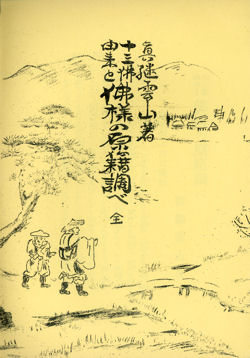 真継雲山著
十三佛
由来と佛様の原籍調べ 全